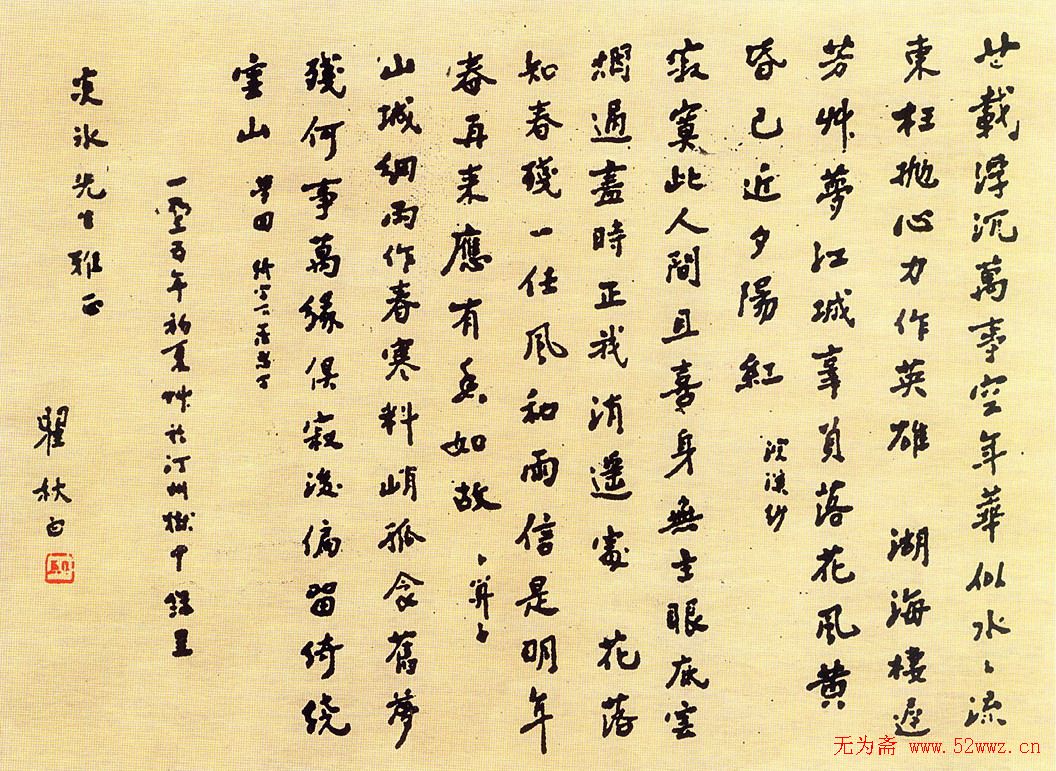 廿載浮沉萬事空年華似水〻流
東枉抛心力作英雄 湖海棲遲
芳艸夢江城辜負落花風黄
昏已近夕陽紅 浣溪紗
寂寞此人間且喜身無主眼底雲
烟過盡時正我消遥處 花落
知春殘一任風和雨信是明年
春再来應有香如故 卜算子
山城細雨作春寒料峭孤衾舊夢
殘何事萬緣俱寂後偏留綺繞
雲山
一九三五年初夏 於汀州獄中 錄呈
冰先生雅正
瞿秋白
无为斋 www.52wwz.cn